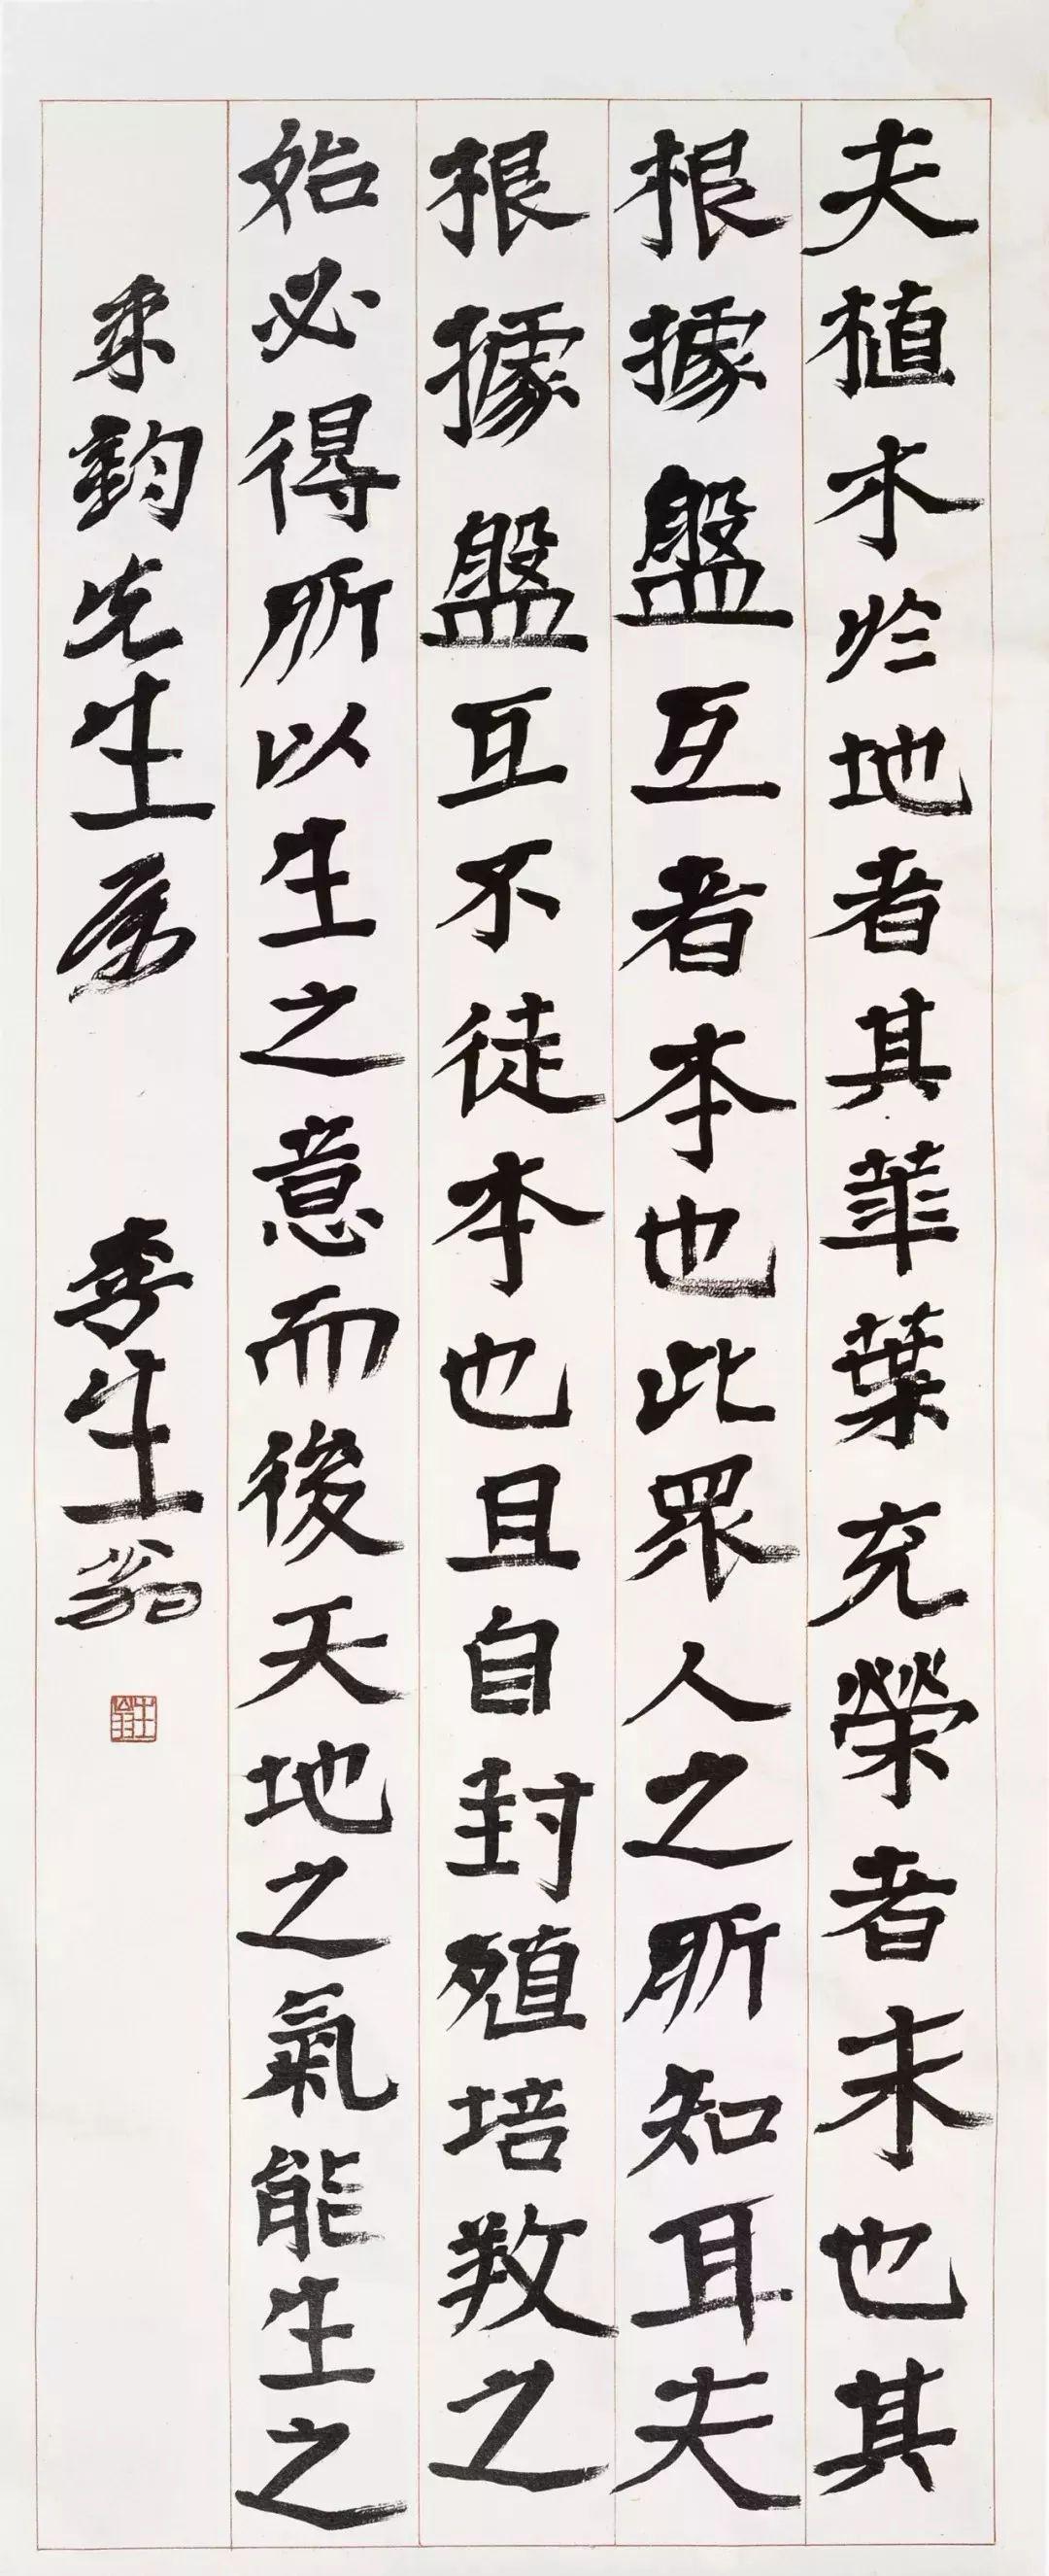 夫植木於地者其華葉充榮者末也其
根據盤互者本也此眾人之所知耳夫
根據盤互不徒本也且自封殖培教之
始必得所以生之意而後天地之氣能生之
來鈞先生屬
李生翁
生翁